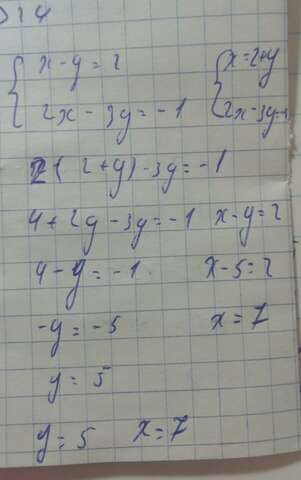 { x - y = 2 { x = 2 + y
{ 2x - 3y = -1 { 2x - 3y = -1
2(2 + y) - 3y = -1
4 + 2y - 3y = -1 x - y = 2
4 - y = -1 x - 5 = 2
-y = -5 x = 7
y = 5
y = 5 x = 7